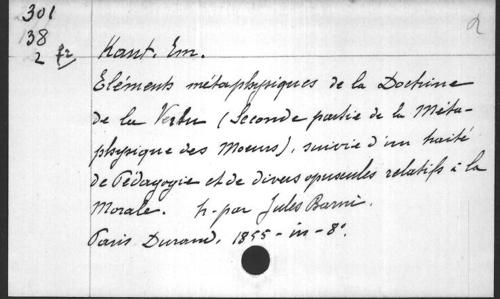 301
38
2 fr
2
Kant. Em.
Eléments métaphysiques de la Doctrine
de la Vertu (Seconde partie de la Méta-
physique des Moeurs), suivie d'un traité
de Pédagogie et de divers opuscules relatifs à la
Morale. tr. par Jules Barni.
Paris Durand. 1855 - in - 8º.